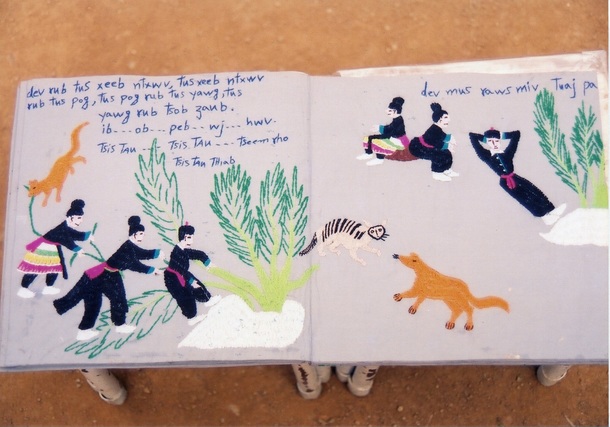 dev rub tus xeeb ntxwv, tus xeeb ntxwv
rub tus pog, tus pog rub tus yawg, tus
yawg rub tsob zaub.
ib --- ob --- peb --- wj --- hwv
Tsis Tau --- Tsis Tau --- Tseem rho
Tsis Tau Thiab
dev mus raws miv. Tuaj pa